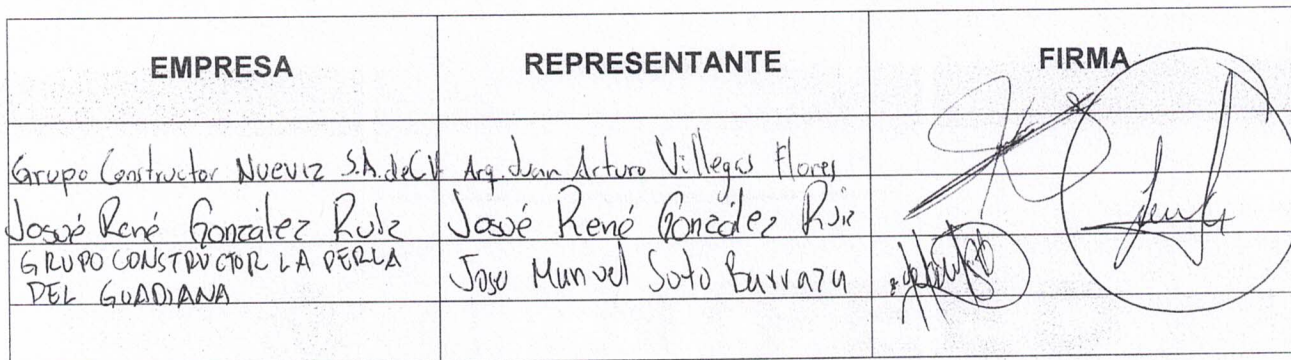 EMPRESA REPRESENTANTE FIRMA
Grupo Constructor Nueviz S.A. de CV Arq. Juan Arturo Villegas Flores
Josué René González Ruiz Josué René González Ruiz
GRUPO CONSTRUCTOR LA PERLA
DEL GUADIANA Jose Manuel Soto Barraza